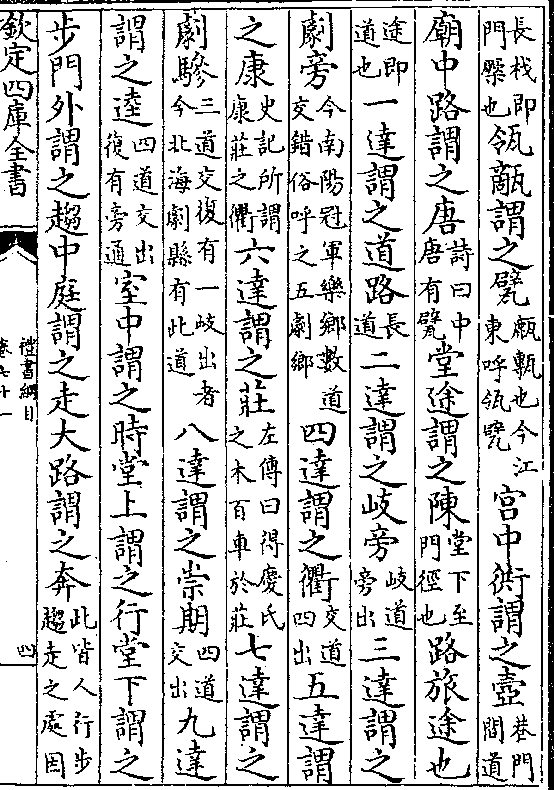 長杙即門橜也瓴甋謂之甓㼾甎也今江東呼瓴甓宮中衖謂之壼巷門間道
廟中路謂之唐詩曰中唐有甓堂途謂之陳堂下至門徑也路旅途也
途即道也一達謂之道路長道二達謂之岐旁岐道旁出三達謂之
劇旁今南陽冠軍樂鄉數道交錯俗呼之五劇鄉四達謂之衢交道四出五達謂
之康史記所謂康莊之衢六達謂之莊左傳曰得慶氏之木百車於莊七達謂之
劇驂三道交復有一岐出者今北海劇縣有此道八達謂之崇期四道交出九達
謂之逵四道交出復有旁通室中謂之時堂上謂之行堂下謂之
步門外謂之趨中庭謂之走大路謂之奔此皆人行步趨走之處因
欽定四庫全書
禮書綱目
卷六十一
四